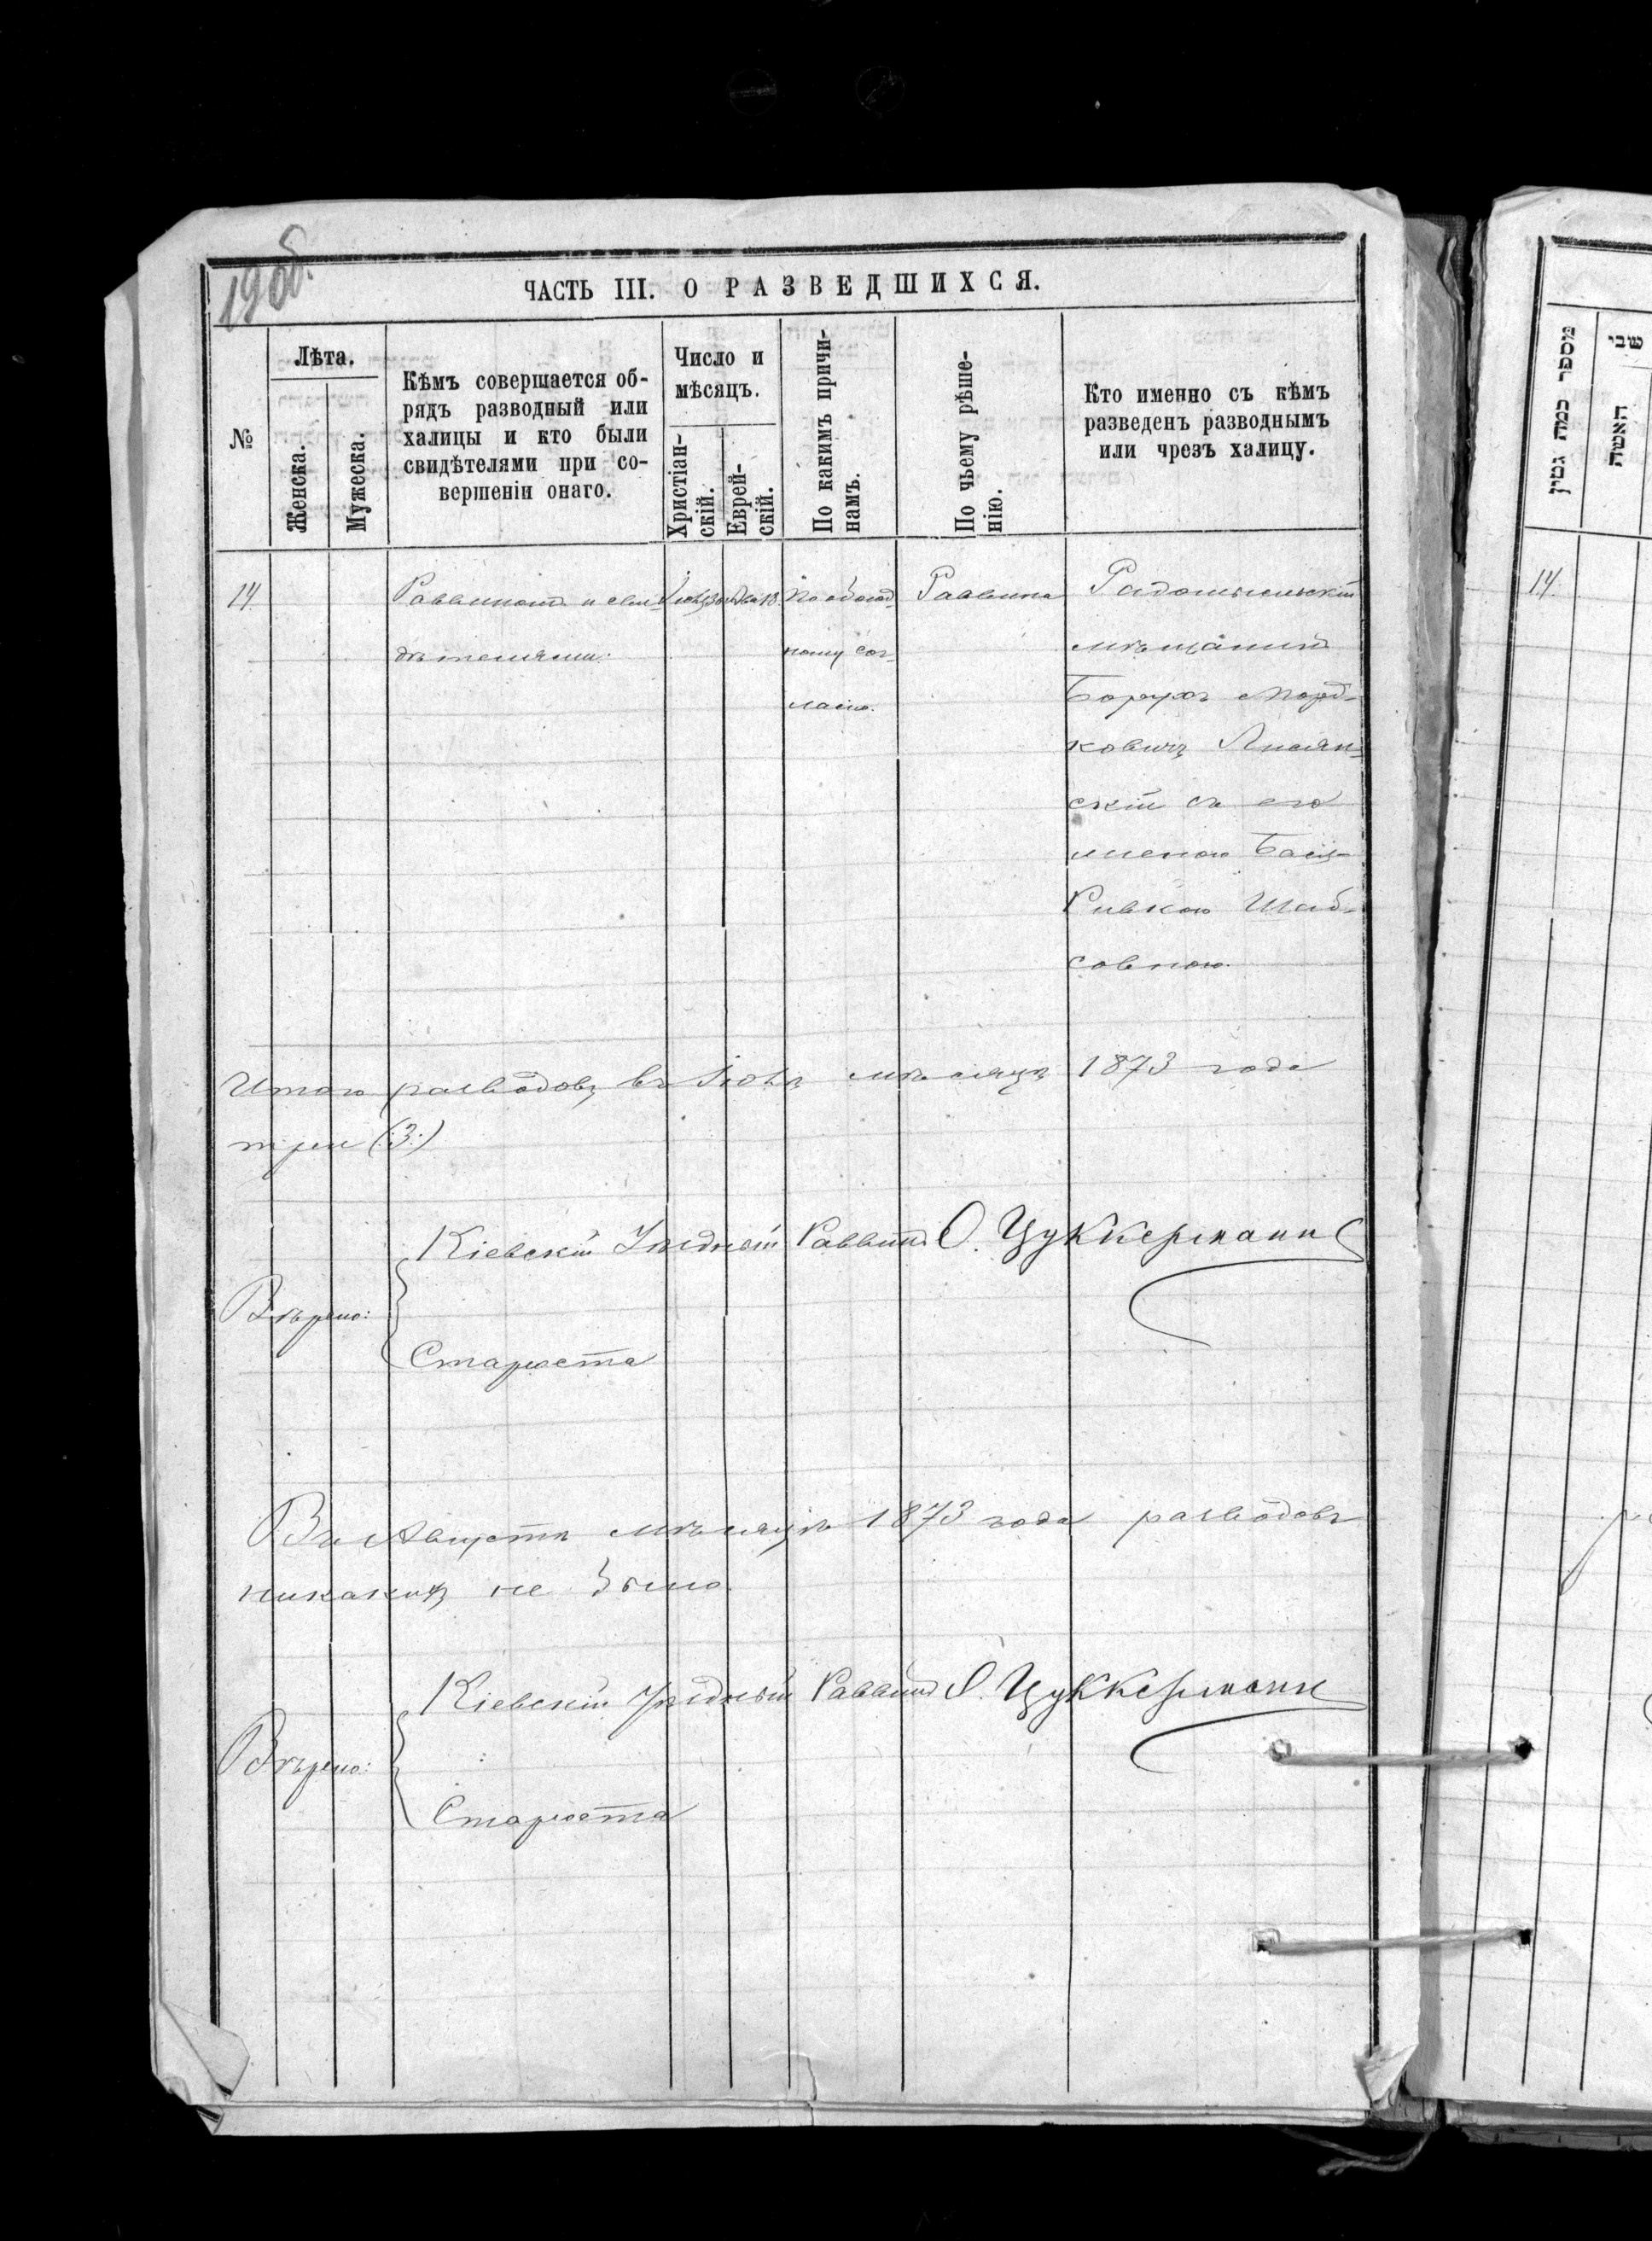 19 об.
ЧАСТЬ III. О РАЗВЕДШИХСЯ.
№
Лѣта.
Женска.
Мужеска.
Кѣмъ совершается об-
рядъ разводный или
халицы и кто были
свидѣтелями при со-
вершеніи онаго.
Число и
мѣсяцъ.
Христіан-
скій.
Еврей-
скій.
По какимъ причи-
намъ.
По чьему рѣше-
нію.
Кто именно съ кѣмъ
разведенъ разводнымъ
или чрезъ халицу.
14
Раввиномъ и сви-
дѣтелями.
По обоюд-
ному сог-
ласію.
Раввина
Радомысльскій
мѣщанинъ
Борухъ Морд-
ковичъ Лисян-
скій съ его
женою Басей-
Ривкою Шаб-
совною.
Итого разводовъ въ Іюлѣ мѣсяцѣ 1873 года
три (:3:)
Кіевскій Уѣздный Раввинъ О. Цуккерманъ
Вѣрно:
Староста
Въ Августѣ мѣсяцѣ 1873 года разводовъ
никакихъ не было.
Кіевскій Уѣздный Раввинъ О. Цуккерманъ
Вѣрно:
Староста
מספר כמה גטין
שני
האשה
14.